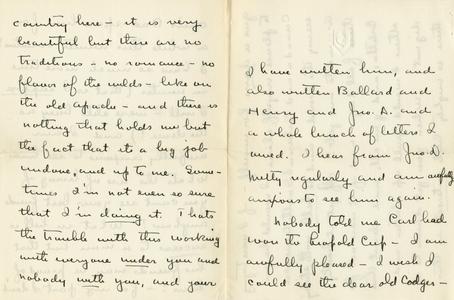 country here – it is very
beautiful but there are no
traditions – no romance – no
flavor of the wilds – like on
the old apache – and there is
nothing that holds me but
the fact that its a big job
undone, and up to me. Some-
times I'm not even so sure
that I'm doing it. Thats
the trouble with this working
with everyone under you and
nobody with you, and your
I have written him, and
also written Ballard and
Henry and Jno. A. and
a whole bunch of letters I
owed. I hear from Jno. D.
pretty regularly and am awfully
anxious to see him again.
Nobody told me Carl had
won the Leopold Cup – I am
awfully pleased – I wish I
could see the dear old Codger –